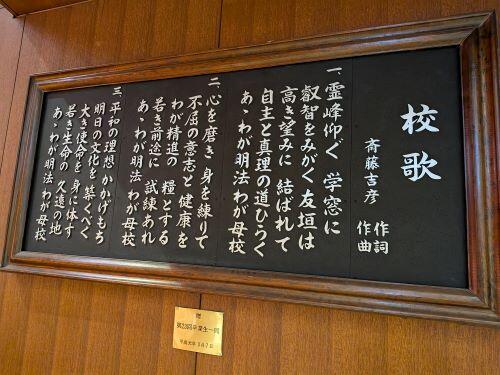 校歌
斎藤吉彦 作詞 作曲
一、霊峰仰ぐ 学窓に
叡智をみがく友垣は
高き望みに 結ばれて
自主と真理の道ひらく
あゝわが明法 わが母校
二、心を磨き 身を練りて
不屈の意志と健康を
わが精進の 糧とする
若き前途に 試練あれ
あゝわが明法 わが母校
三、平和の理想 かかげもち
明日の文化を 築くべく
大き使命を 身に体す
若き生命の 久遠の地
あゝわが明法 わが母校
贈
卒業生一同
平成